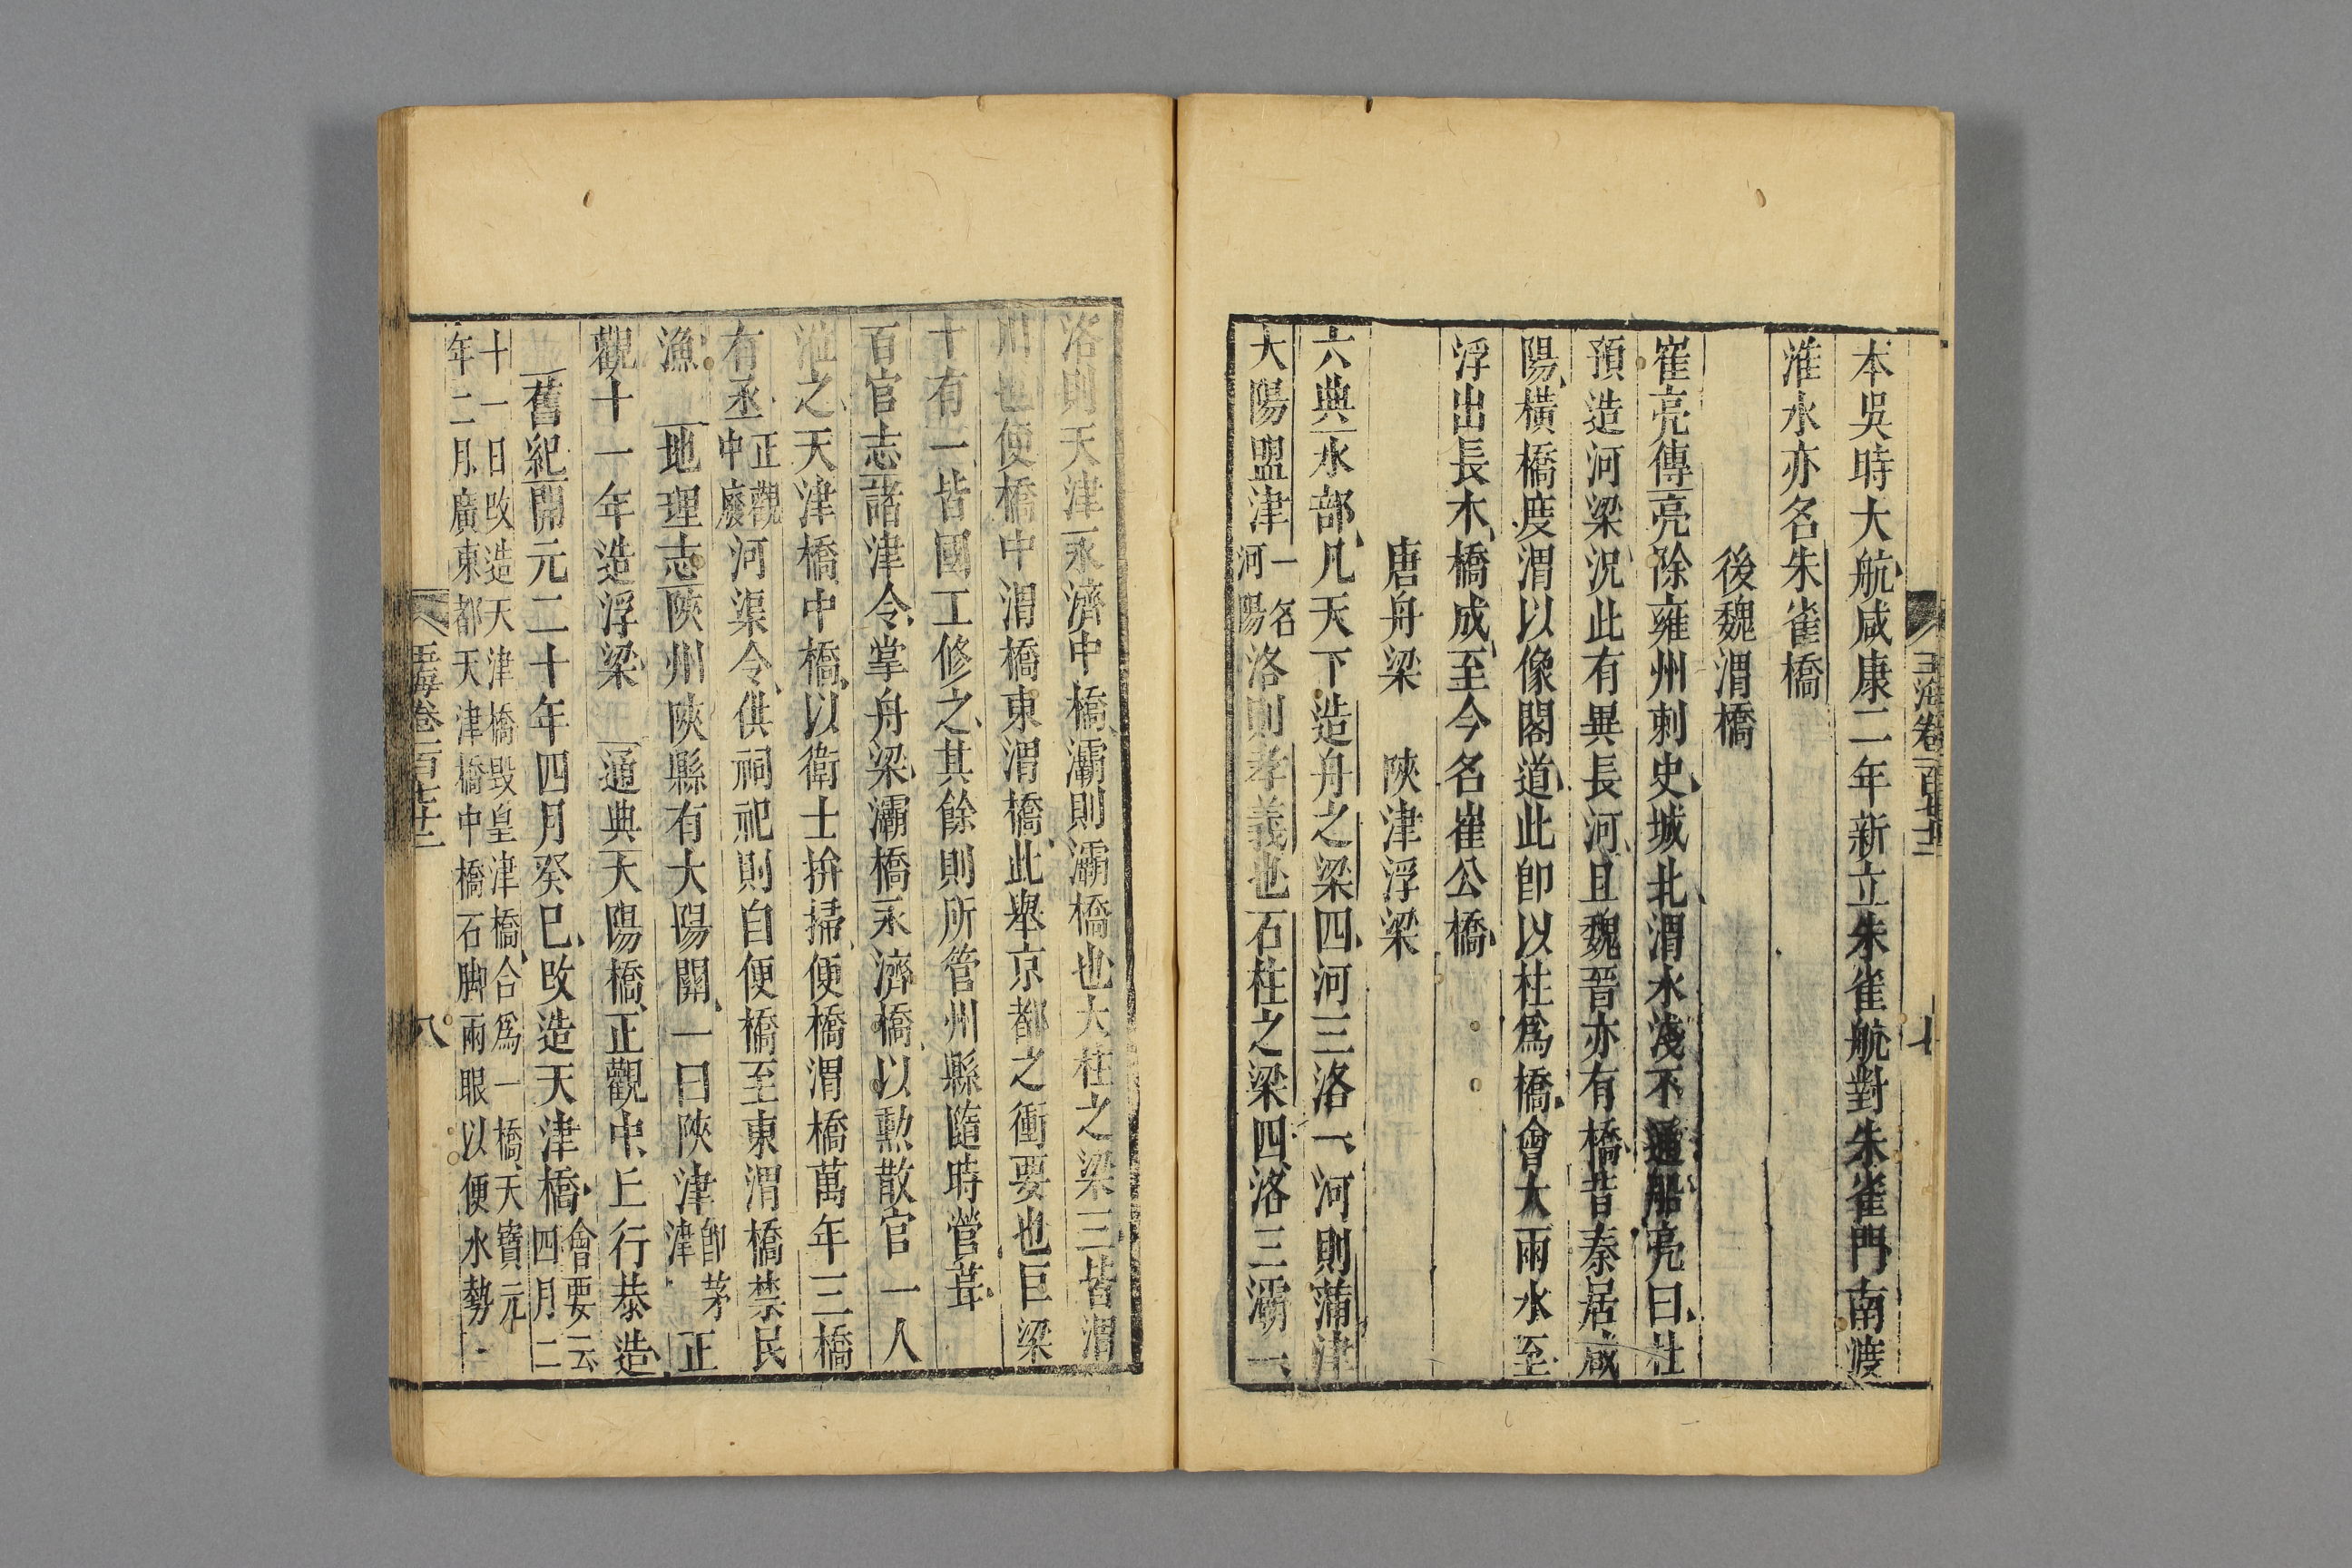 本吳時大航咸康二年新立朱雀航對朱雀門南渡
淮水亦名朱雀橋
後魏渭橋
崔亮傳亮除雍州刺史城北渭水淺不通船亮曰杜
預造河梁況此有異長河且魏晉亦有橋昔秦居咸
陽橫橋度渭以像閣道此卽以柱爲橋會大雨水至
浮出長木橋成至今名崔公橋
唐舟梁 陝津浮梁
六典水部凡天下造舟之梁四河三洛一河則蒲津
大陽盟津一名河陽洛則孝義也石柱之梁四洛三灞一
玉海卷一百七十二 七
洛則天津永濟中橋灞則灞橋也大柱之梁三皆渭
川也便橋中渭橋東渭橋此舉京都之衝要也巨梁
十有一皆國工修之其餘則所管州縣隨時營葺
百官志諸津令掌舟梁灞橋永濟橋以勲散官一人
涖之天津橋中橋以衛士拚掃便橋渭橋萬年三橋
有丞正觀中廢河渠令供祠祀則自便橋至東渭橋禁民
漁 地理志陝州陝縣有大陽關一曰陝津卽茅津 正
觀十一年造浮梁 通典大陽橋正觀中丘行恭造
舊紀開元二十年四月癸巳改造天津橋會要云四月二
十一日改造天津橋毀皇津橋合爲一橋天寶元
年二月廣東都天津橋中橋石腳兩眼以便水勢
玉海卷一百七十二 八